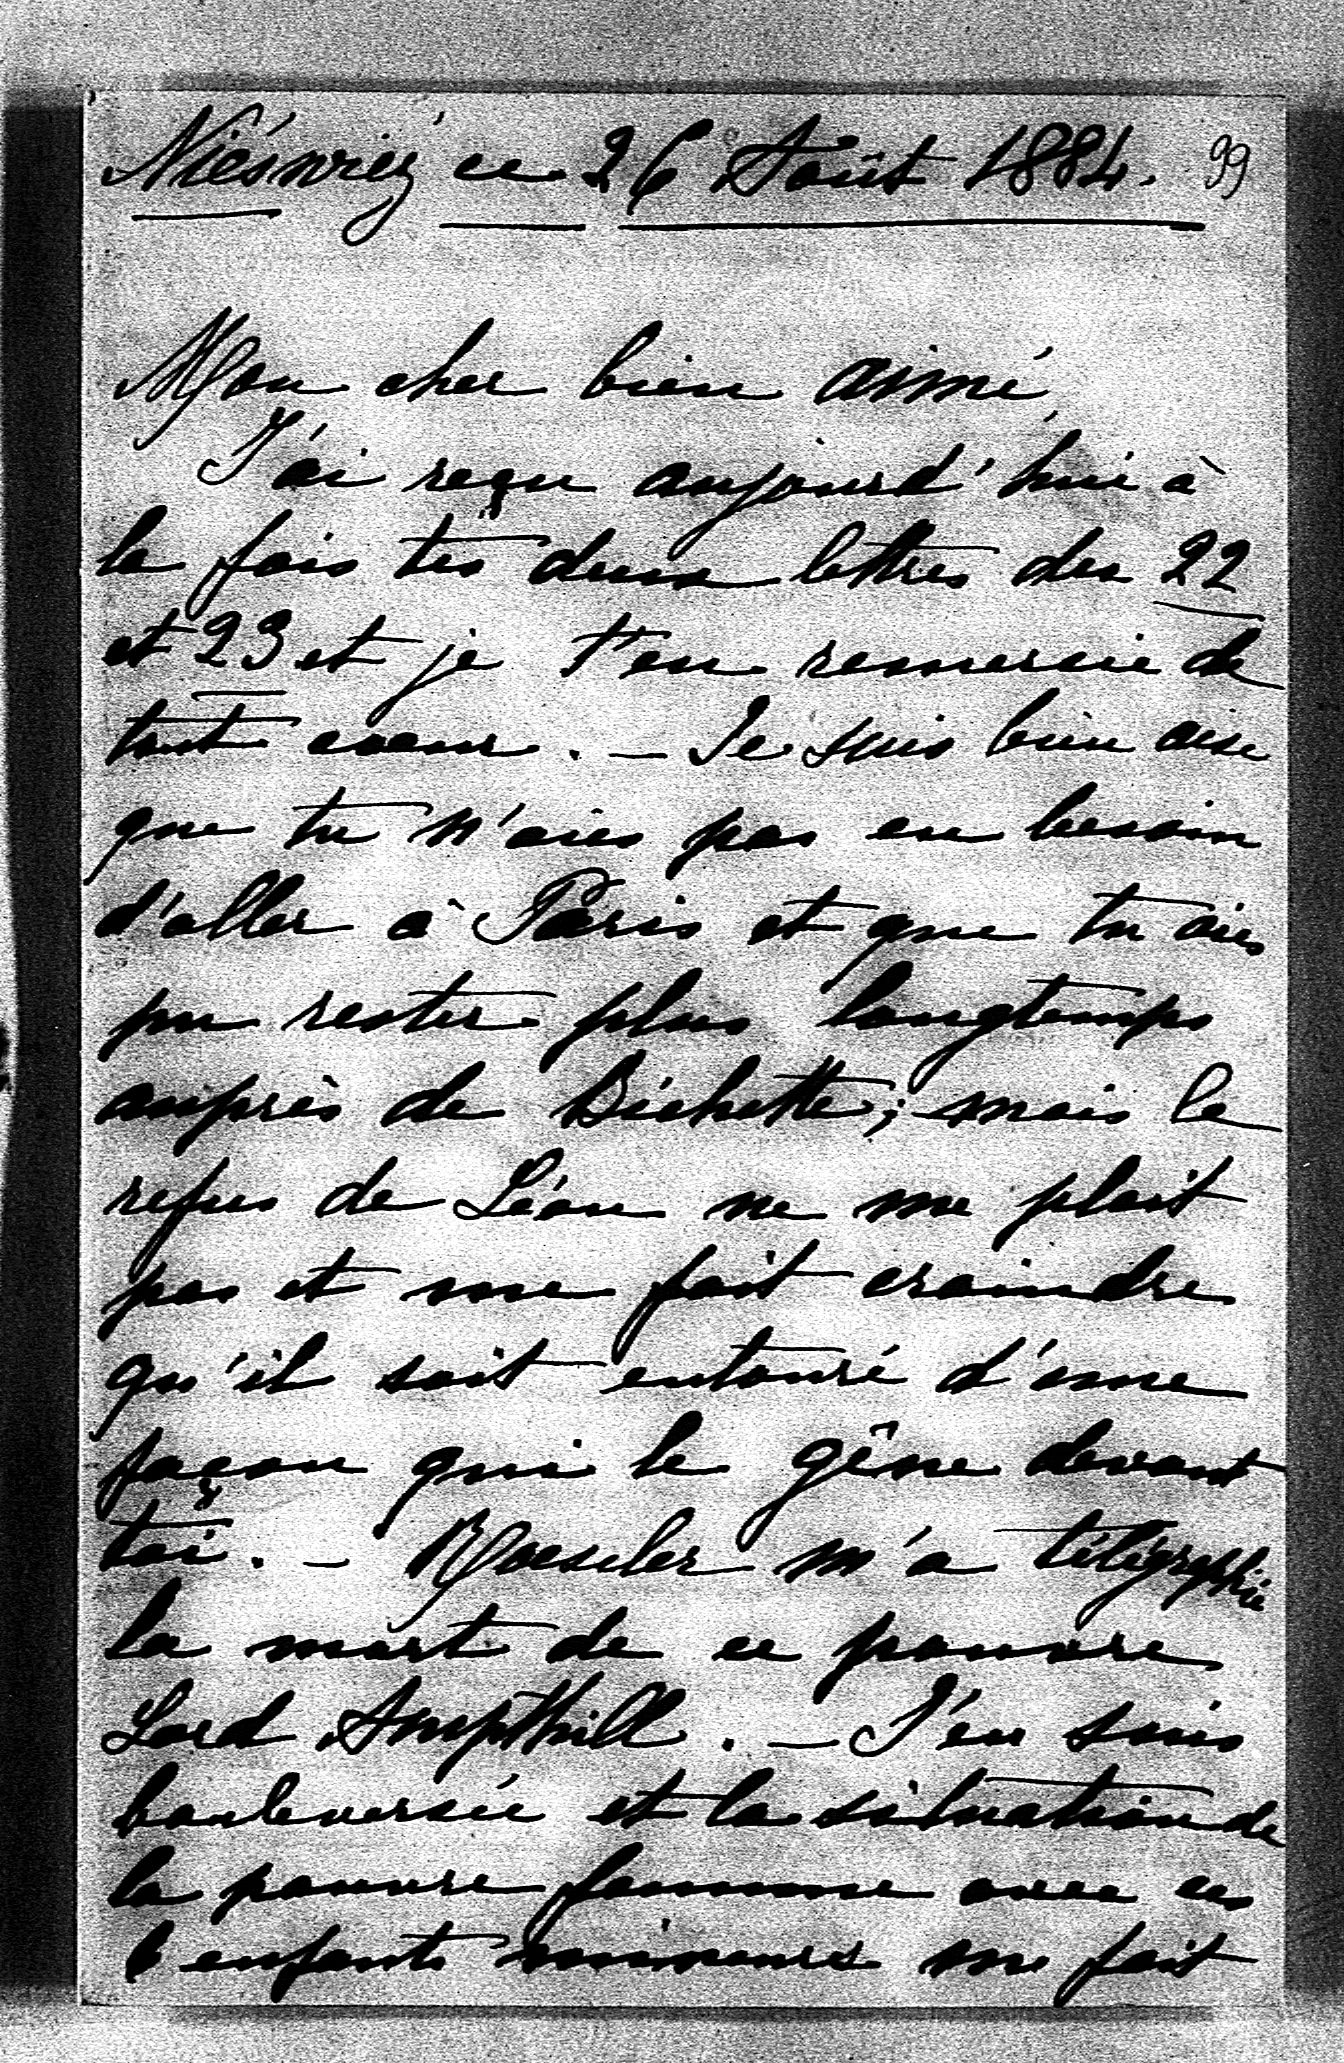 Niéswiéź ce 26 Août 1884. 99
Mon cher bien aimé,
J'ai reçu aujourd'hui à
la fois tes deux lettres des 22
et 23 et je t'en remercie de
tout coeur. — Je suis bien aise
que tu n'aies pas eu besoin
d'aller à Paris et que tu aies
pu rester plus longtemps
auprès de Bichette; mais le
refus de Léon ne me plait
pas et me fait craindre
qu'il soit entouré d'une
façon qui le gêne devant
toi. — Roeseler m'a télégraphié
la mort de ce pauvre
Lord Ampthill. — J'en suis
bouleversée et la situation de
la pauvre femme avec ces
6 enfants mineurs me fait